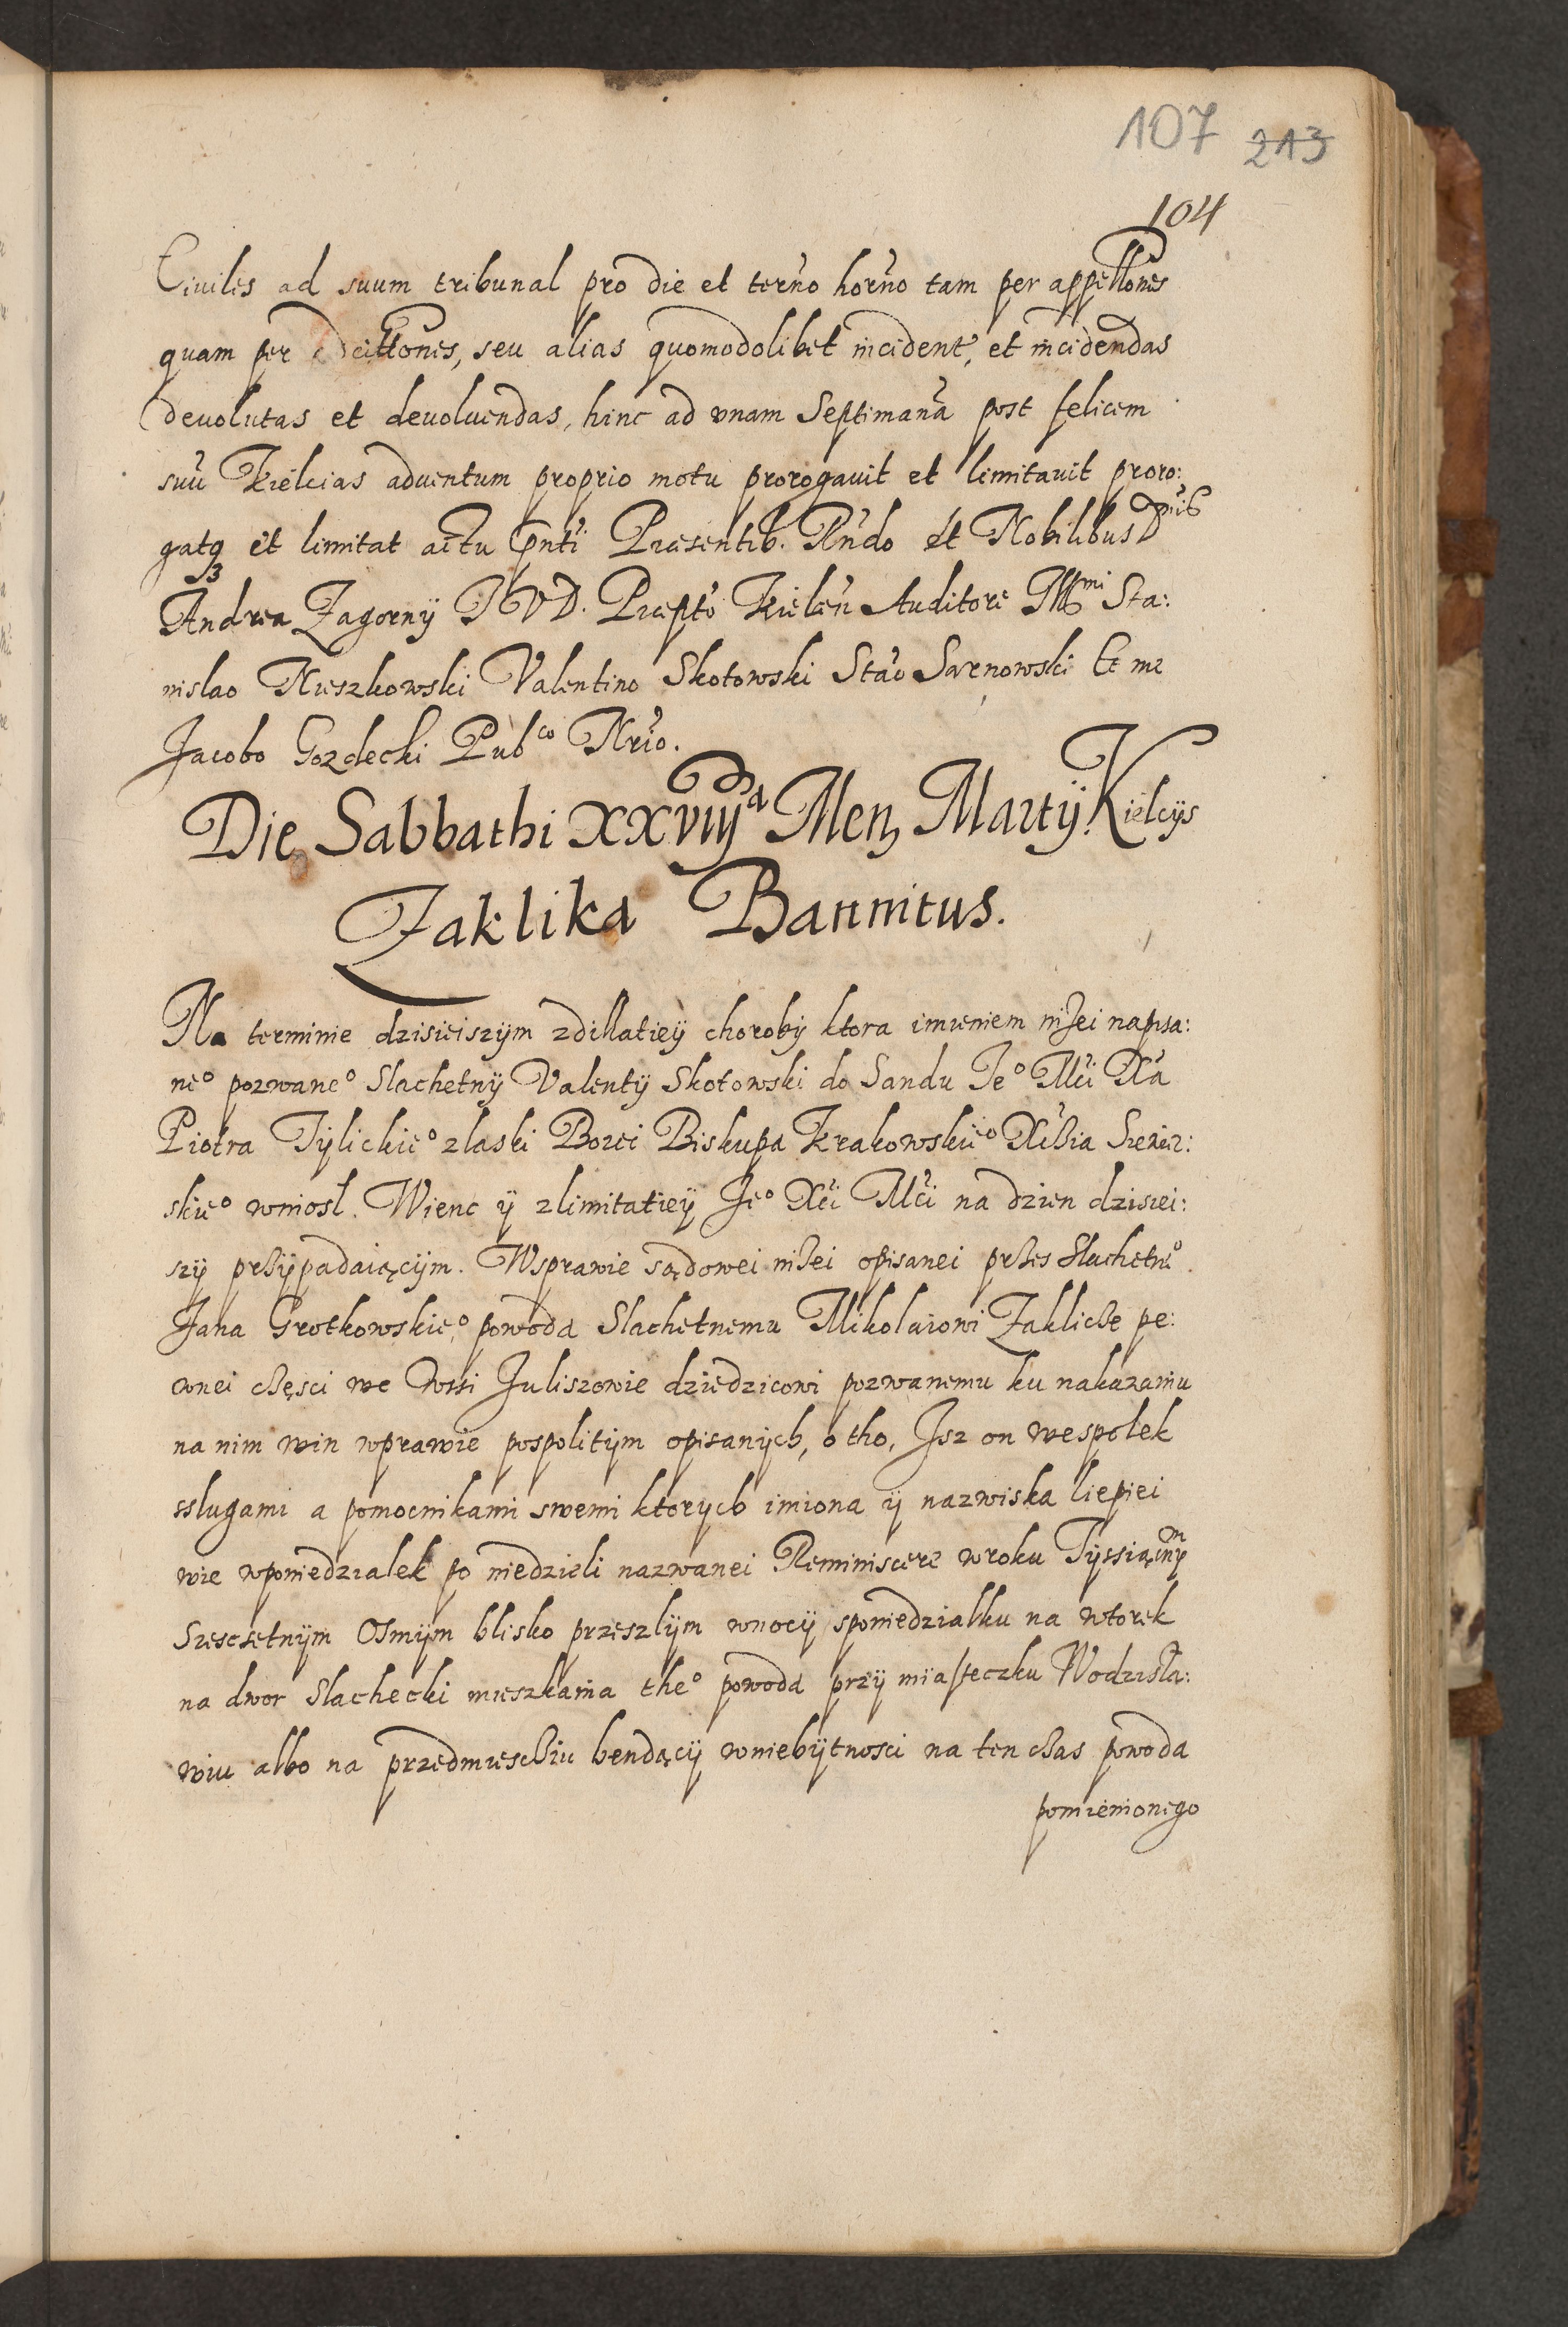 107 213
104
Ciuiles ad suum tribunal pro die et terño horño tam per appellones
quam per citõnes, seu alias quomodolibet incident, et incidendas
deuolutas et deuoluendas, hinc ad vnam Septimanã post felicem
suũ Kielcias aduentum proprio motu prorogauit et limitauit proro:
gatq3 et limitat actu pñti Praesentib. Rñdo et Nobilibus Dnis
Andrea Zagorny J V D. Praepto Kielcen̄ Auditore Mm̃i Sta:
nislao Mieszkowski Valentino Skotowski Stão Sarnowski Et me
Jacobo Gozdecki Pubco Nrio.
Die Sabbathi XXVIIJa Mens Martij Kielcijs
Zaklika Bannitus.
Na terminie dzisieiszÿm zdillatieÿ chorobÿ ktora imieniem niżei napisa:
neo pozwaneo Slachetnÿ Valentÿ Skotowski do Sandu Jeo Mći Xa
Piotra Tÿlickieo zlaski Bozei Biskupa Krakowskieo Xcżia Siewier:
skieo wniosl. Wienc ÿ zlimitatieÿ Jeo Xći Mći na dzien dzisiei:
szÿ prżÿpadaiącÿm. Wsprawie sądowei niżei opisanei prżes Slachetneo
Jana Grotkowskieo powoda Slachetnemu Mikolaiowi Zaklicze pe:
wnei cżęsci we wssi Juliszowie dziedzicowi pozwanemu ku nakazaniu
na nim win wprawie pospolitÿm opisanÿch, o tho, Jsz on wespolek
sslugami a pomocnikami swemi ktorych imiona ÿ nazwiska liepiei
wie wponiedzialek po niedzieli nazwanei Reminiscere wroku Tÿssiącnym
Szescsetnÿm Osmÿm blisko przeszlÿm wnocÿ sponiedzialku na wtorek
na dwor Slachecki mieszkania theo powoda przÿ miasteczku Wodzisla:
wiu albo na przedmiescżiu bendącÿ wniebÿtnosci na ten cżas powoda
pomienionego